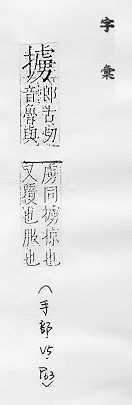 字彙
擄 郎古切
音魯與
虜同擄掠也
又獲也服也
(手部 V5 P63)